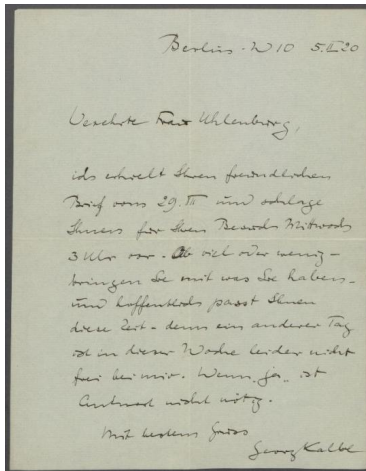 Berlin - W10 5.II 20
Verehrte Frau Uhlenburg,
ich erhielt Ihren freundlichen
Brief vom 29. III und schlage
Ihnen für Ihren Besuch Mittwoch
3 Uhr vor. Ob viel oder wenig -
bringen Sie mit was Sie haben -
und hoffentlich passt Ihnen
diese Zeit - denn ein anderer Tag
ist in dieser Woche leider nicht
frei bei mir. Wenn „ja" ist
Antwort nicht nötig.
Mit bestem Gruss
Georg Kolbe